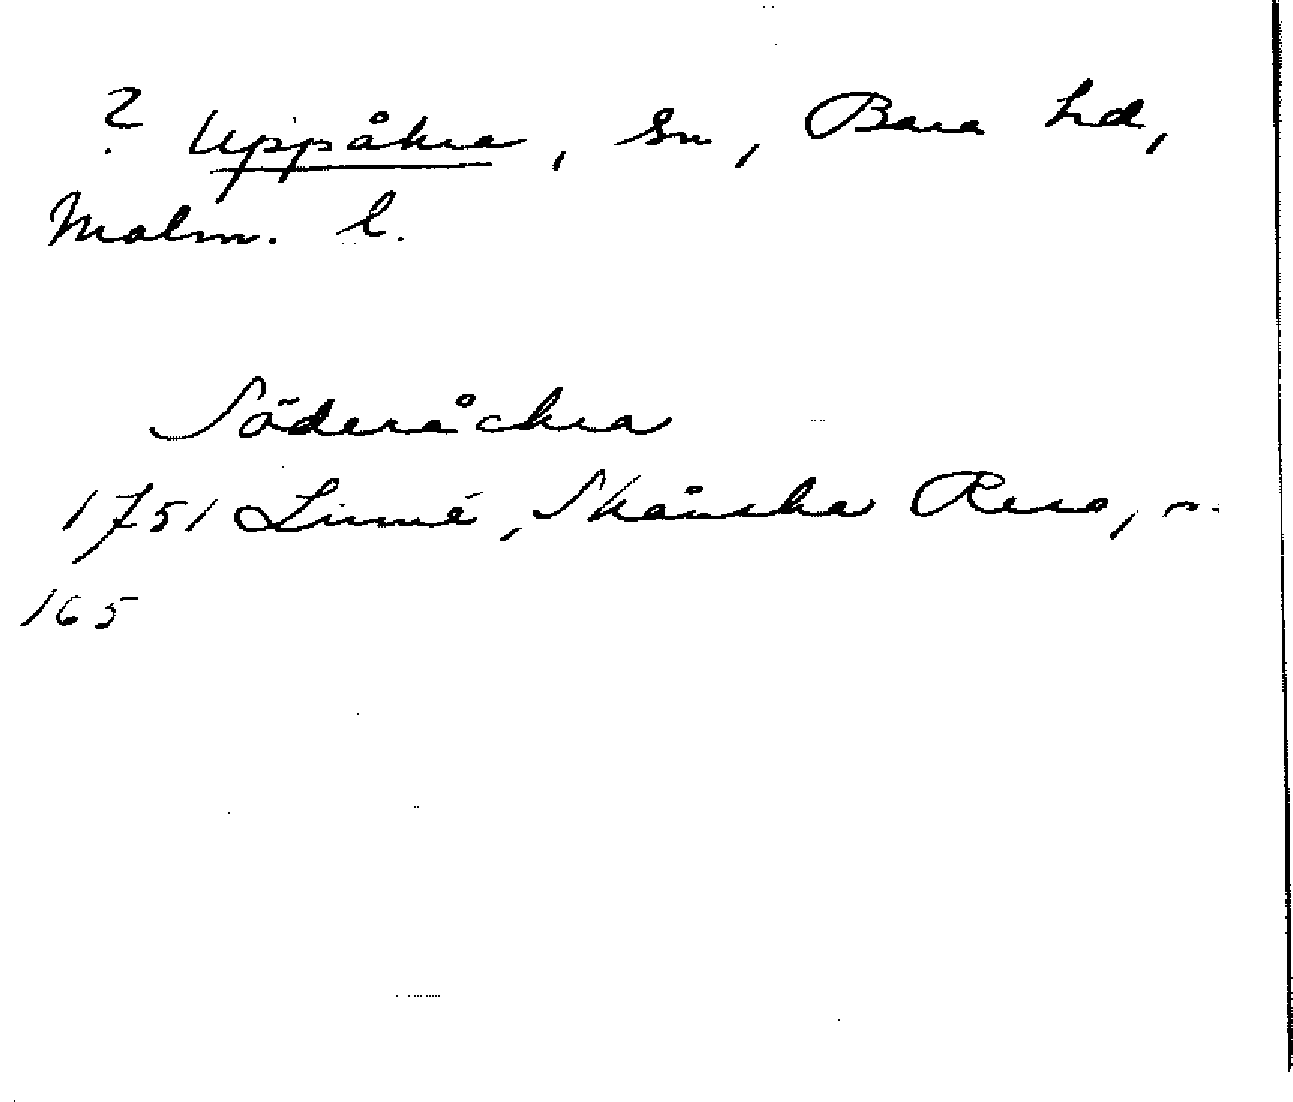 ? Uppåkra, Sn, Bara hd,
Malm. l.
Söderåckra
1751 Linné, Skånska Resa, s.
165